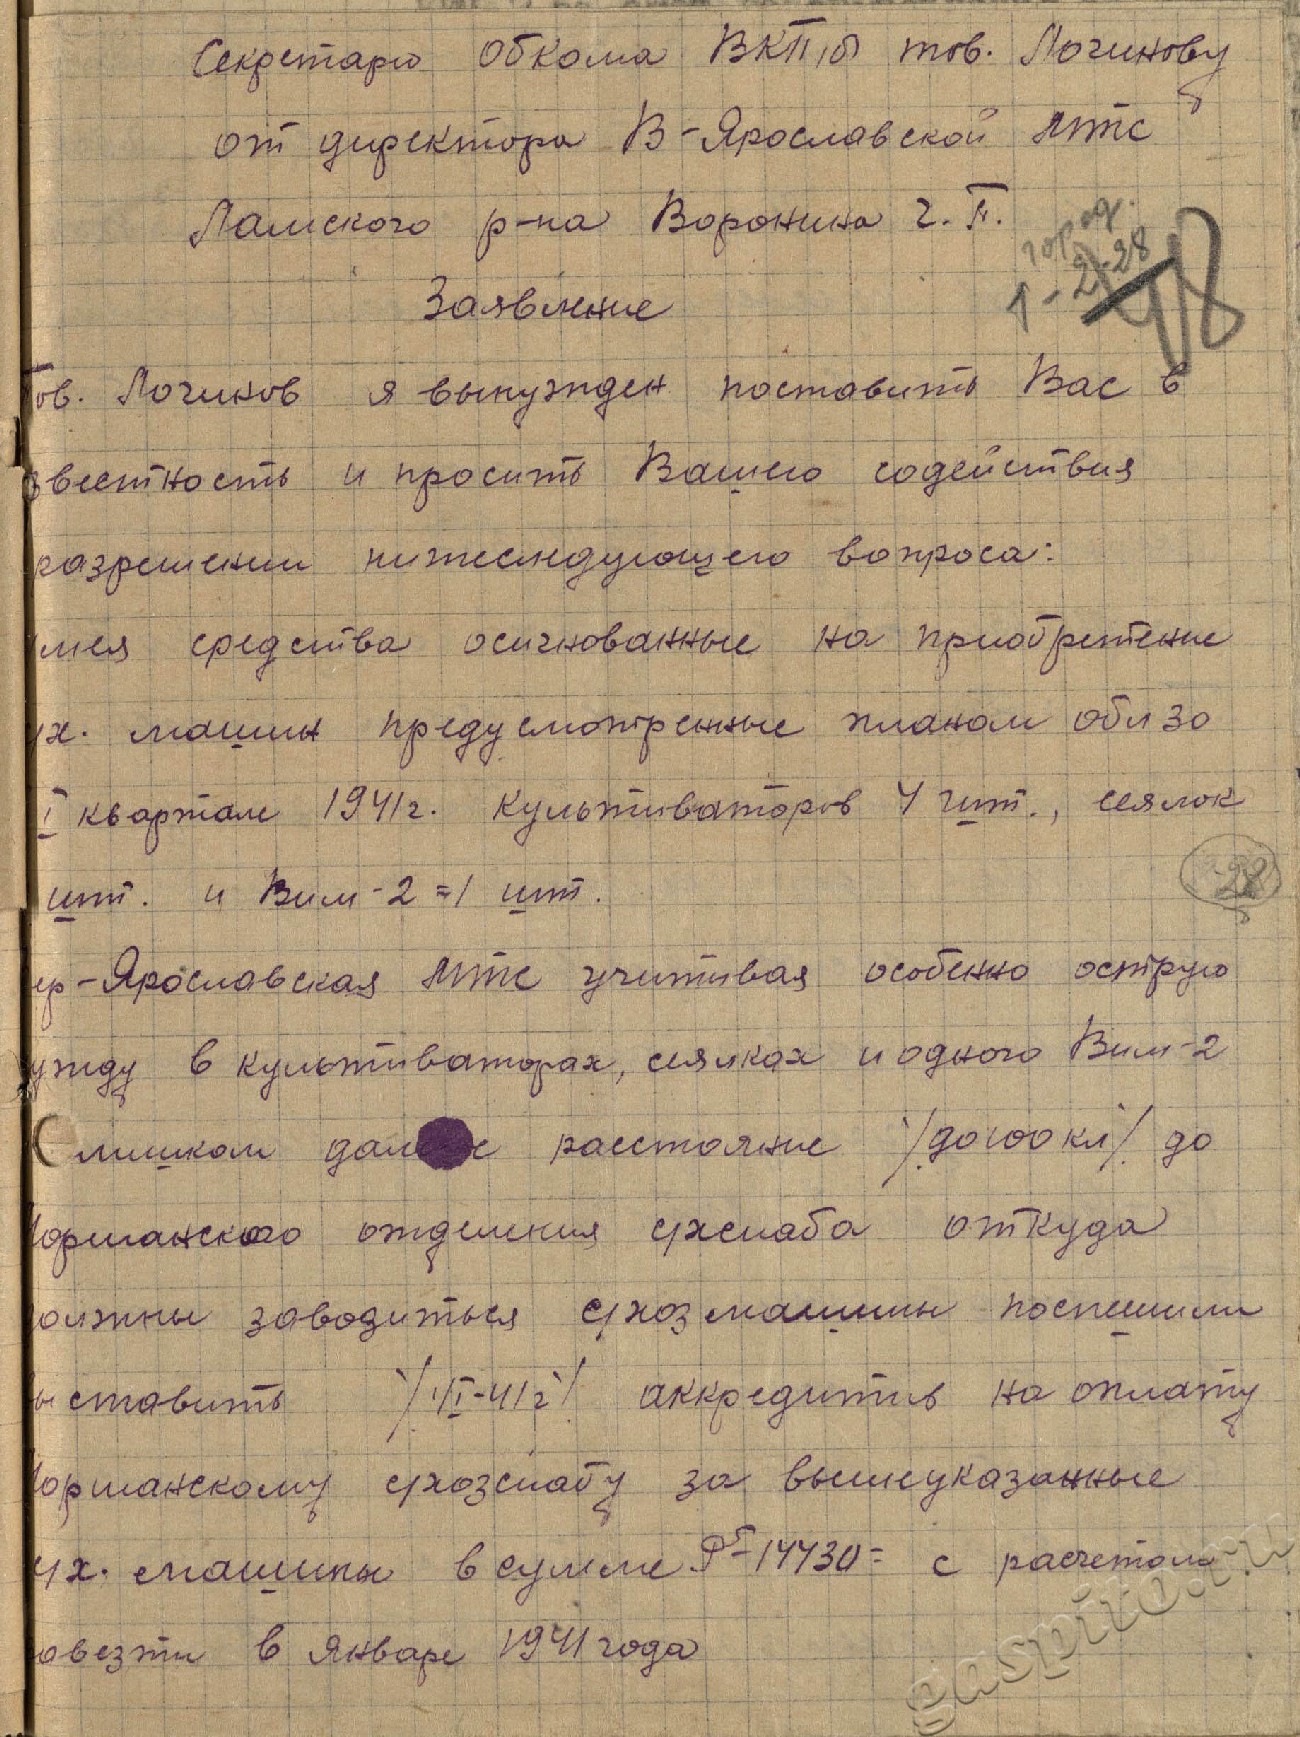 Секретарю Обкома ВКП/б тов. Логинову
от директора В-Ярославской МТС
Ламского р-на Воронина Г. П.
город.
1-2-28
Заявление
Тов. Логинов я вынужден поставить Вас в
звестность и просить Вашего содействия
разрешении нижеследующего вопроса:
мея средства осигнованные на приобретение
ух. машин предусмотренные планом облзо
I квартале 1941г. Культиваторов 4 шт., сеялок
шт. и Вим-2=1 шт.
28
ер-Ярославская МТС учитивая особенно острую
ужду в культиваторах, сеялках и одного Вим-2
Слишком расстояние /до 100 кл/ до
Моршанского отделения с/хснаба откуда
олжны заводиться с/хозмашины поспешили
ыставить /1/I-41г/ аккредитив на оплату
Моршанскому с/хозснабу за вышеуказанные
с/х. машины в сумме Р5-14430= с расчетом
авезти в Январе 1941 года
gaspito.ru